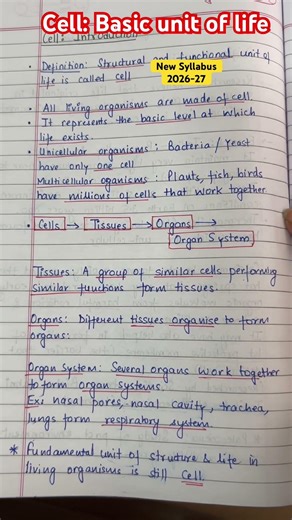 Cell: Basic unit of life
Cell: Introduction
• Definition: Structural and functional unit of
life is called cell
New Syllabus
2026-27
• All living organisms are made of cell.
• It represents the basic level at which
life exists.
• Unicellular organisms: Bacteria/Yeast
have only one cell
Multicellular oganisms: Plants, fish, birds
have millions of cells that work together
• Cells → Tissues → Organs →
Organ System
Tissues: A group of similar cells performing
similar functions form tissues.
Organs: Different tissues organise to form
organs:
Organ System: Several organs work together
to form organ systems.
Ex: nasal pores, nasal cavity, trachea,
lungs form respiratory system.
* Fundamental unit of structure & life in
living organisms is still Cell.